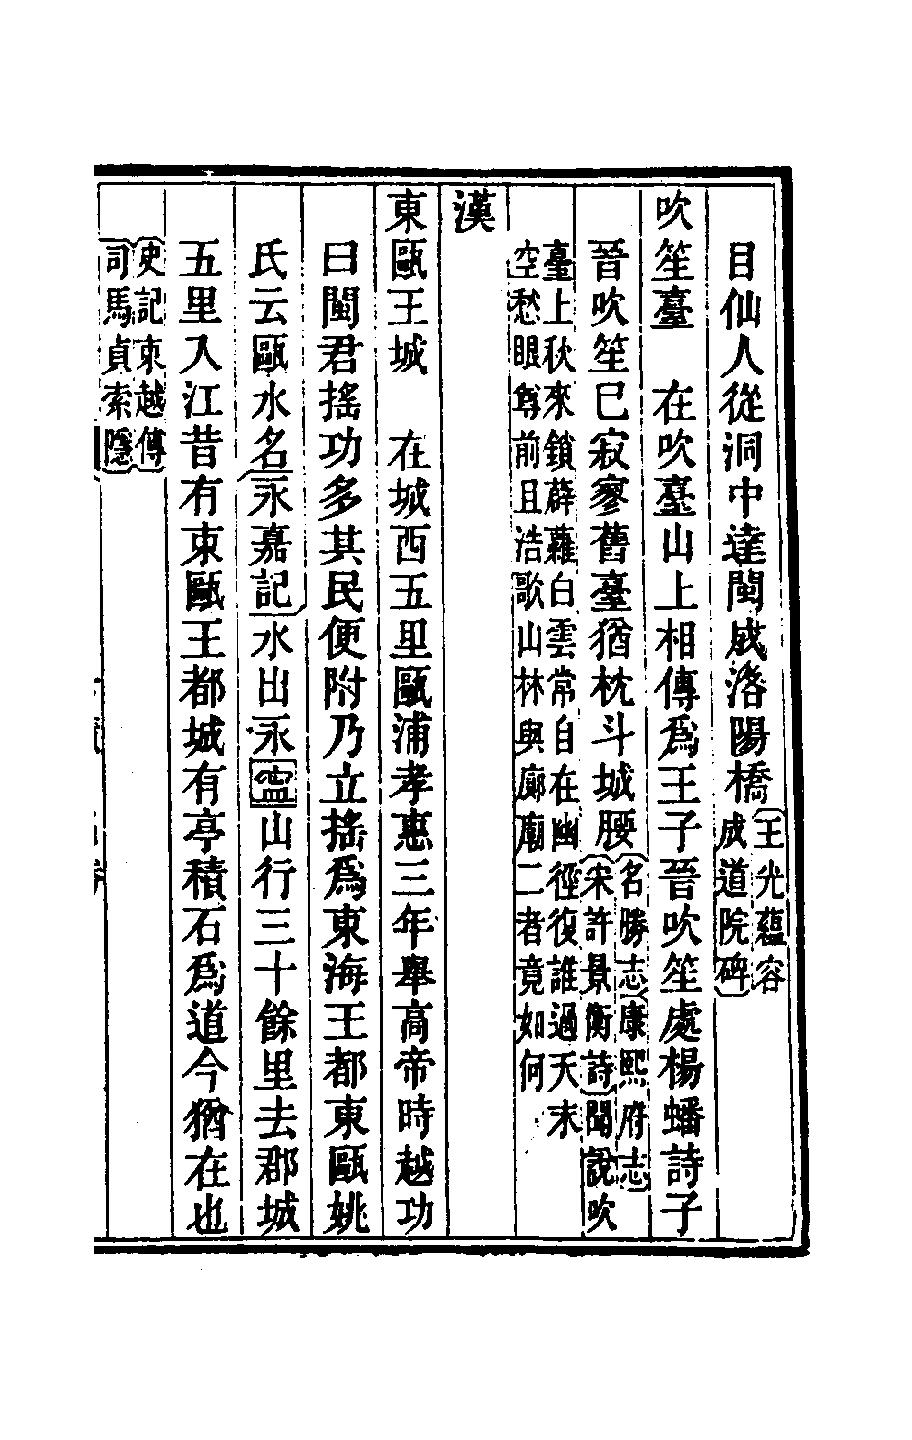 目仙人從洞中達閩成洛陽橋王光蘊容
成道院碑
吹笙臺　在吹臺山上相傳爲王子晉吹笙處楊蟠詩子
晉吹笙巳寂寥舊臺猶枕斗城腰名勝志康熙府志
宋許景衡詩聞說吹
臺上秋來鎖薜蘿白雲常自在幽徑復誰過天末
空愁眼尊前且浩歌山林與廊廟二者竟如何
漢
東甌王城　在城西五里甌浦孝惠三年舉高帝時越功
曰閩君搖功多其民便附乃立搖爲東海王都東甌姚
氏云甌水名永嘉記水出永寍山行三十餘里去郡城
五里入江昔有東甌王都城有亭積石爲道今猶在也
史記東越傳
司馬貞索隱